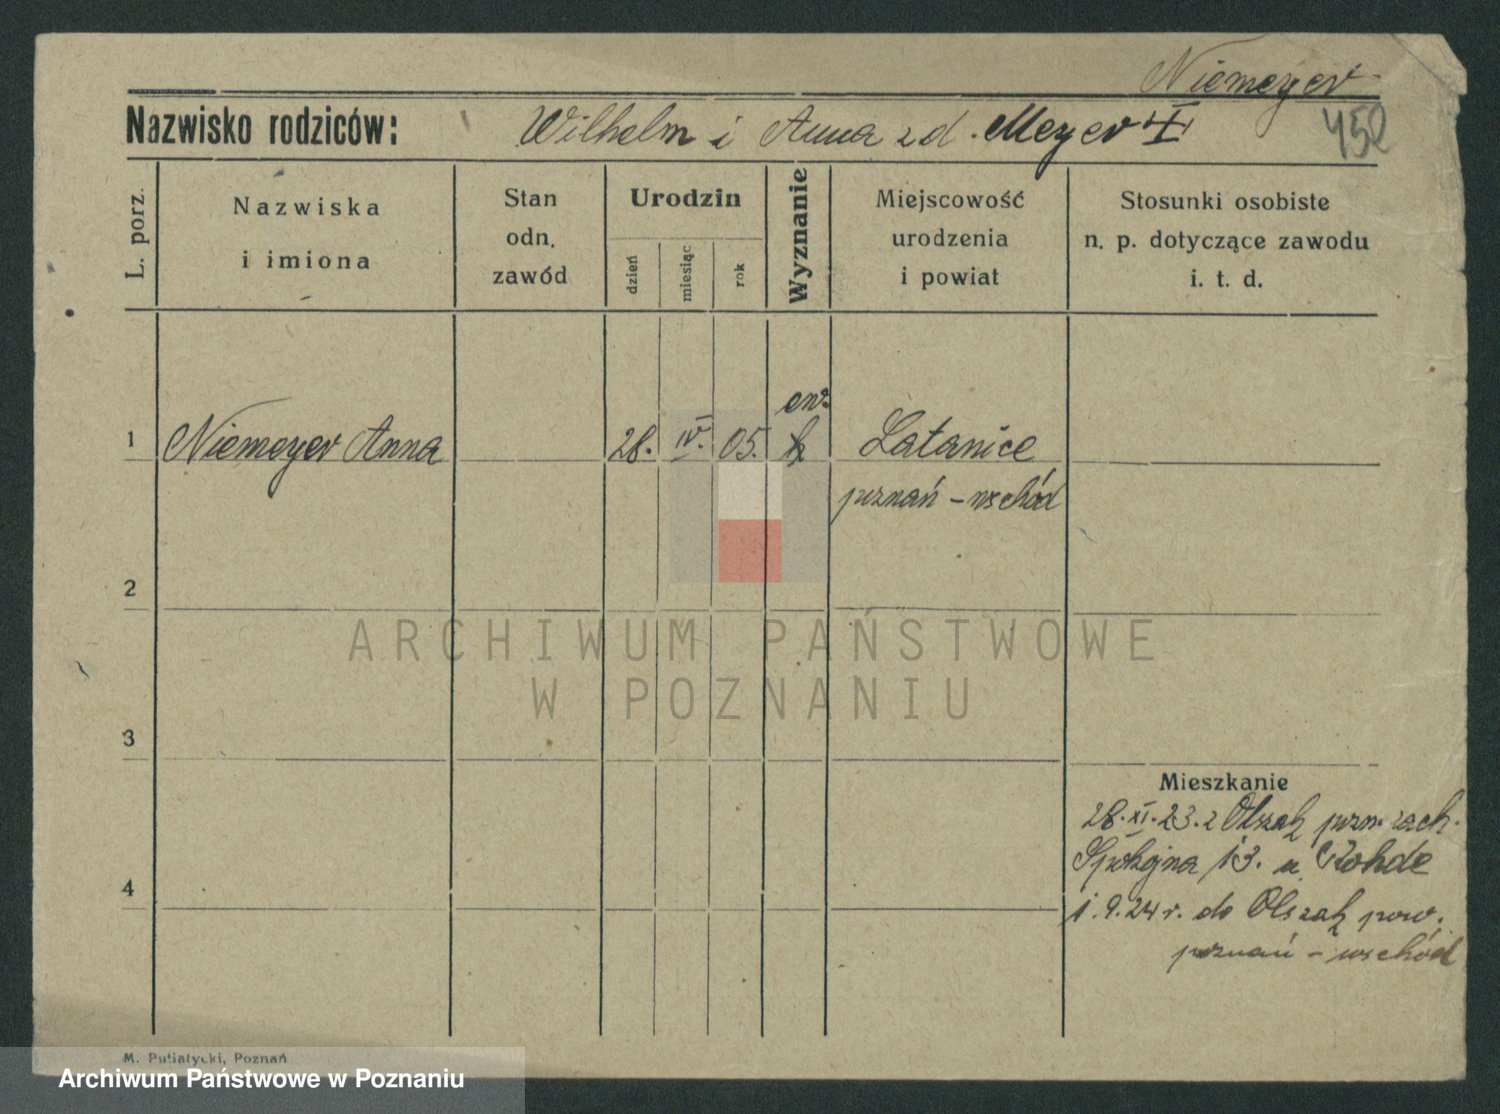 Niemeyer
Nazwisko rodziców: Wilhelm i Anna z d. Meyer
452
L. porz.
Nazwiska
i imiona
Stan
odn.
zawód
Urodzin
dzień
miesiąc
rok
Wyznanie
Miejscowość
urodzenia
i powiat
Stosunki osobiste
n. p. dotyczące zawodu
i. t. d.
ew.
1 Niemeyer Anna 28. IV. 05. Latanice
poznań - wschód
2
ARCHIWUM PAŃSTWOWE
W POZNANIU
3
Mieszkanie
28. XI. 23. z Olszak pozn. zach.
Spokojna 13. u Rohde
4
1. 9. 24 r. do Olszak pow.
poznań - wschód
M. Putiatycki, Poznań
Archiwum Państwowe w Poznaniu